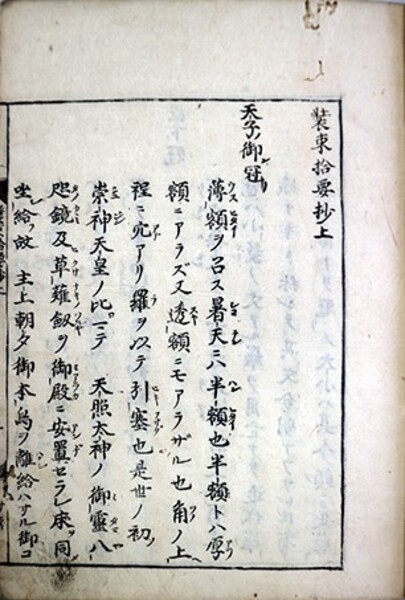 装束拾要抄上
天子御冠
薄額ヲ召ス暑天ニハ半額也半額トハ厚
額ニアラズ又透額ニモアラザル也角ノ上
程ニ穴アリ羅ヲ以テ引塞也是世ノ初
崇神天皇ノ比マテ 天照太神ノ御霊八
咫鏡及草薙釼ヲ御殿ニ安置セラレ床ヲ同
坐給故 主上朝夕御本鳥ヲ離給ハサル御コ